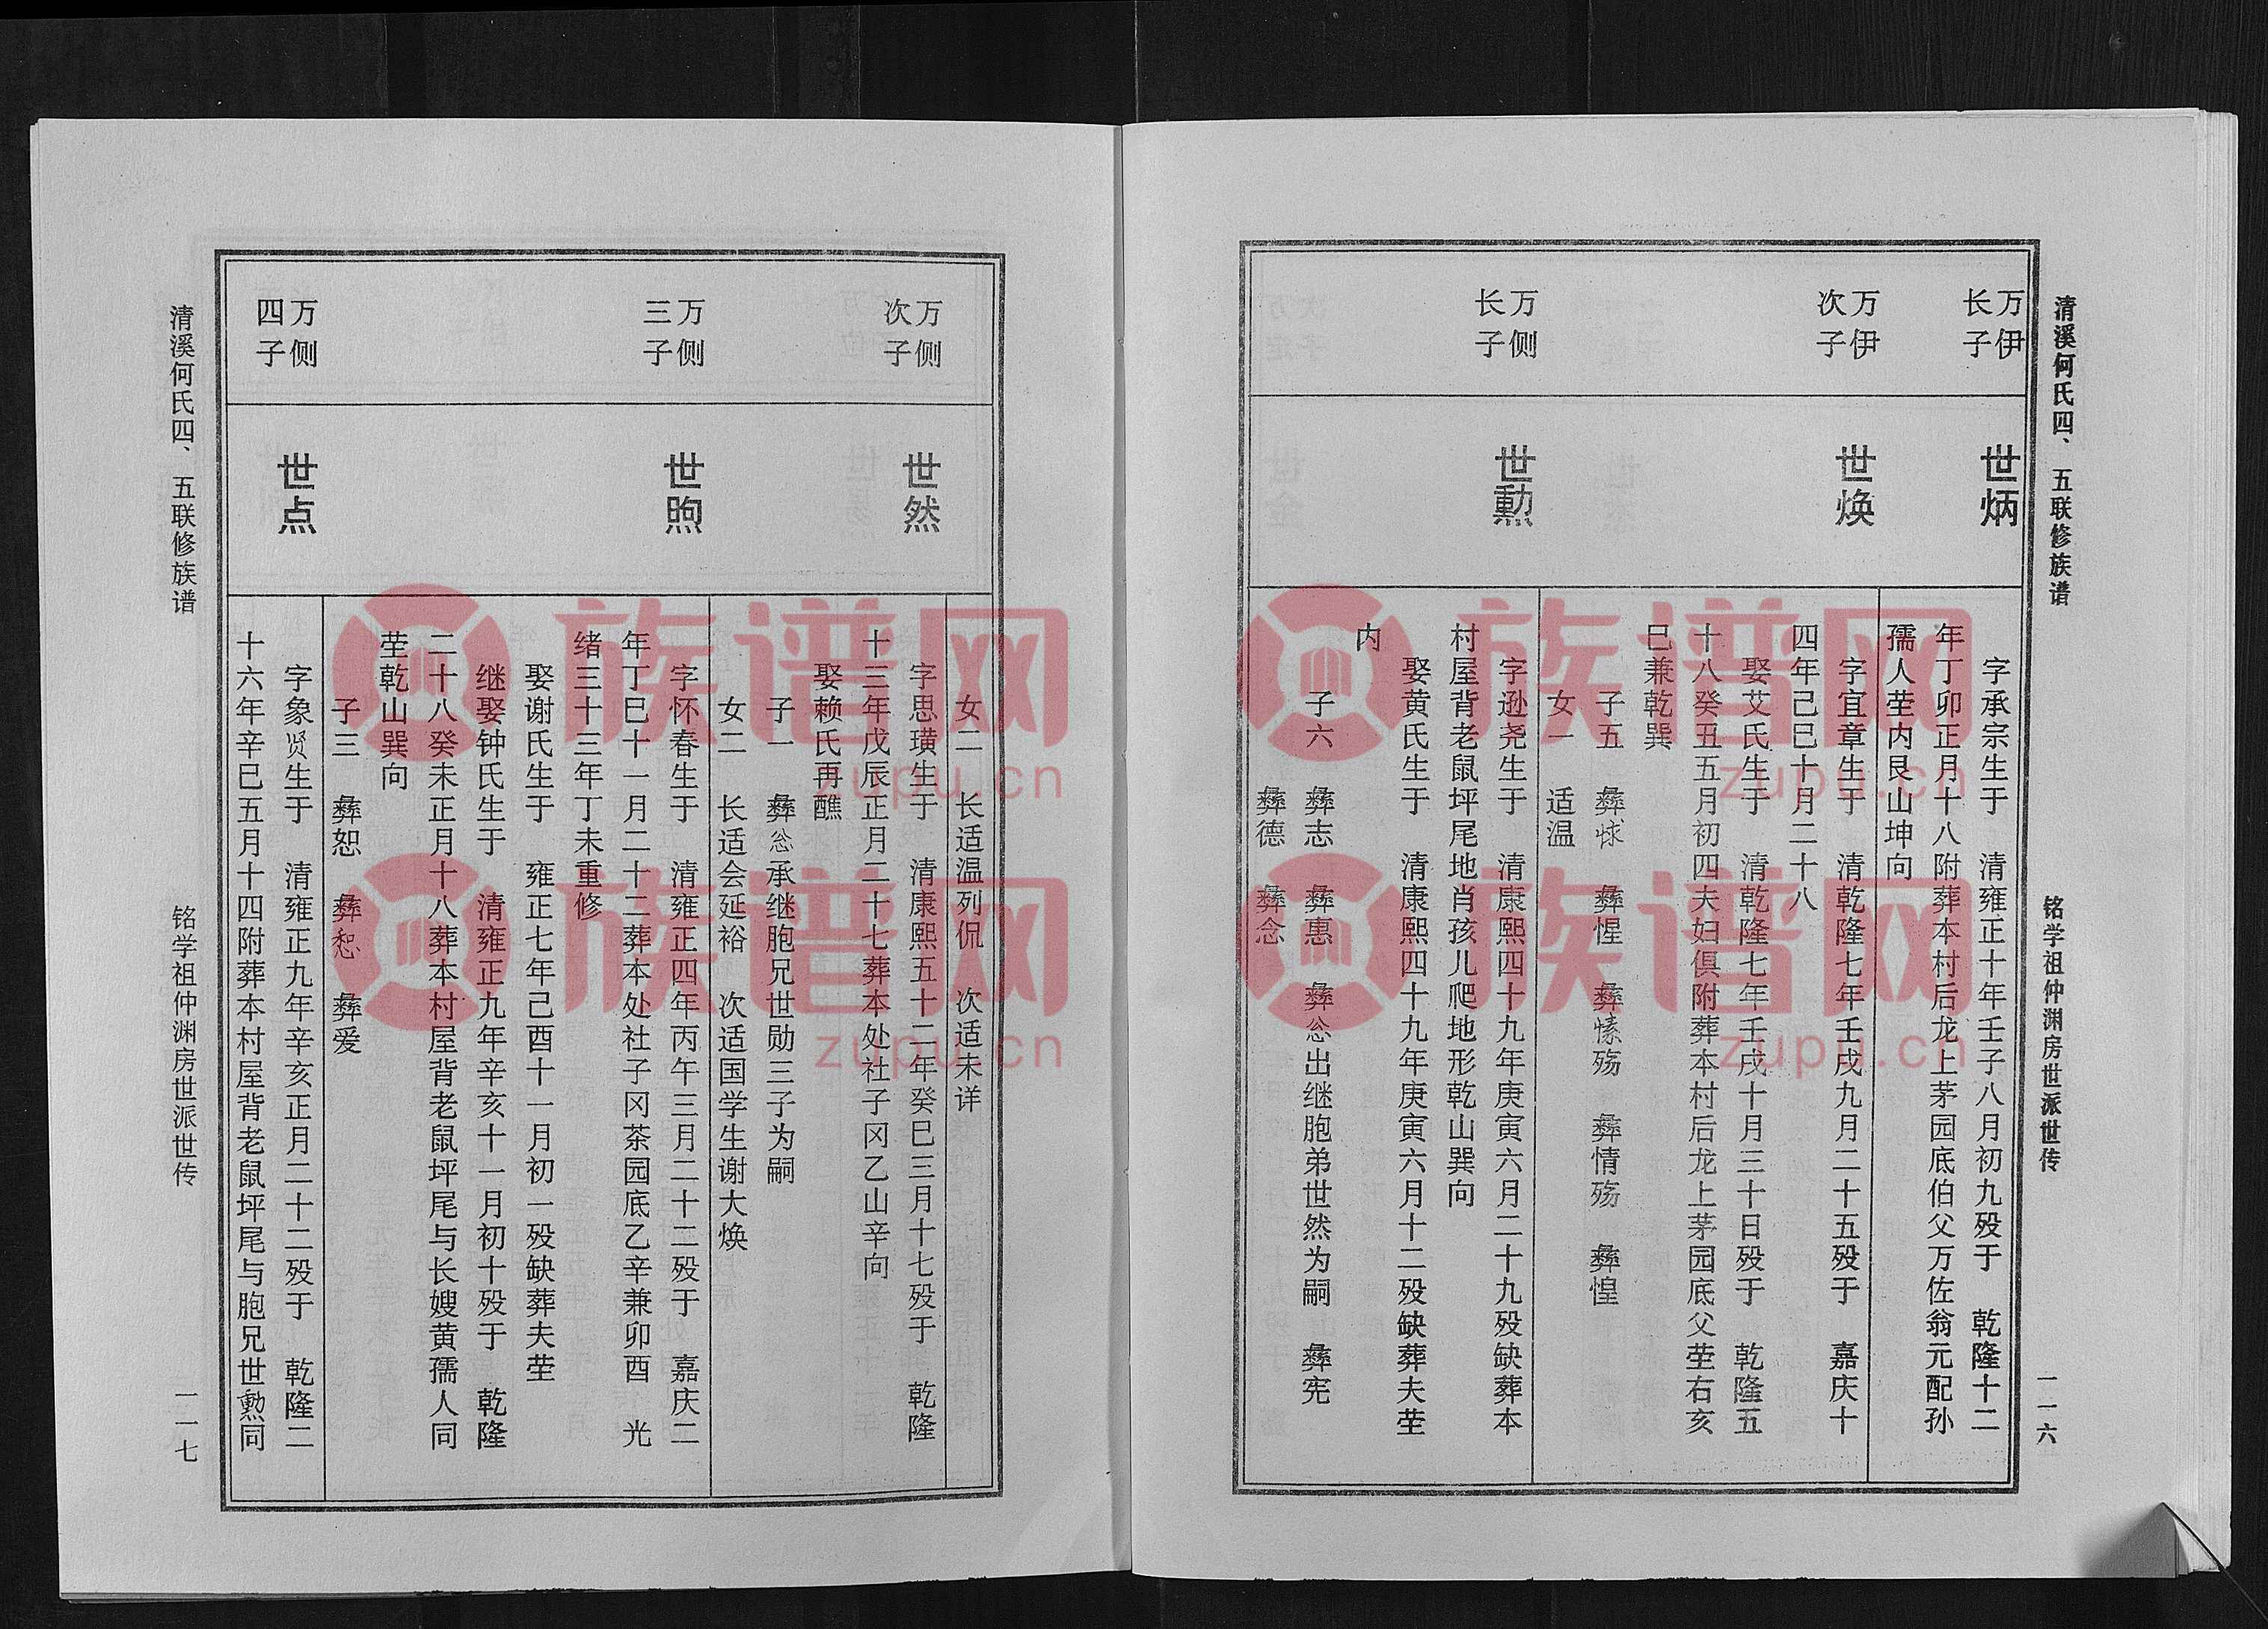 清溪何氏四、五联修族谱
铭学祖仲渊房世派世传
一一六
万伊
长子
世炳
字承宗生于 清雍正十年壬子八月初九殁于 乾隆十二
年丁卯正月十八附葬本村后龙上茅园底伯父万佐翁元配孙
孺人茔内艮山坤向
万伊
次子
世焕
字宜章生于 清乾隆七年壬戌九月二十五殁于 嘉庆十
四年己巳十月二十八
娶艾氏生于 清乾隆七年壬戌十月三十日殁于 乾隆五
十八癸丑五月初四夫妇俱附葬本村后龙上茅园底父茔右亥
巳兼乾巽
子五 彝怺 彝惺 彝愫殇 彝情殇 彝惶
女一 适温
万侧
长子
世勳
字逊尧生于 清康熙四十九年庚寅六月二十九殁缺葬本
村屋背老鼠坪尾地肖孩儿爬地形乾山巽向
娶黄氏生于 清康熙四十九年庚寅六月十二殁缺葬夫茔
内
子六 彝志 彝惠 彝忩出继胞弟世然为嗣 彝宪
彝德 彝念
女二 长适温列侃 次适未详
万侧
次子
世然
字思璜生于 清康熙五十二年癸巳三月十七殁于 乾隆
十三年戊辰正月二十七葬本处社子冈乙山辛向
娶赖氏再醮
子一 彝忩承继胞兄世勋三子为嗣
女二 长适会延裕 次适国学生谢大焕
万侧
三子
世煦
字怀春生于 清雍正四年丙午三月二十二殁于 嘉庆二
年丁巳十一月二十二葬本处社子冈茶园底乙辛兼卯酉 光
绪三十三年丁未重修
娶谢氏生于 雍正七年己酉十一月初一殁缺葬夫茔
继娶钟氏生于 清雍正九年辛亥十一月初十殁于 乾隆
二十八癸未正月十八葬本村屋背老鼠坪尾与长嫂黄孺人同
茔乾山巽向
子三 彝恕 彝恝 彝爱
万侧
四子
世点
字象贤生于 清雍正九年辛亥正月二十二殁于 乾隆二
十六年辛巳五月十四附葬本村屋背老鼠坪尾与胞兄世勳同
清溪何氏四、五联修族谱
铭学祖仲渊房世派世传
一一七
族谱网
zupu.cn
族谱网
zupu.cn
族谱网
zupu.cn
族谱网
zupu.cn